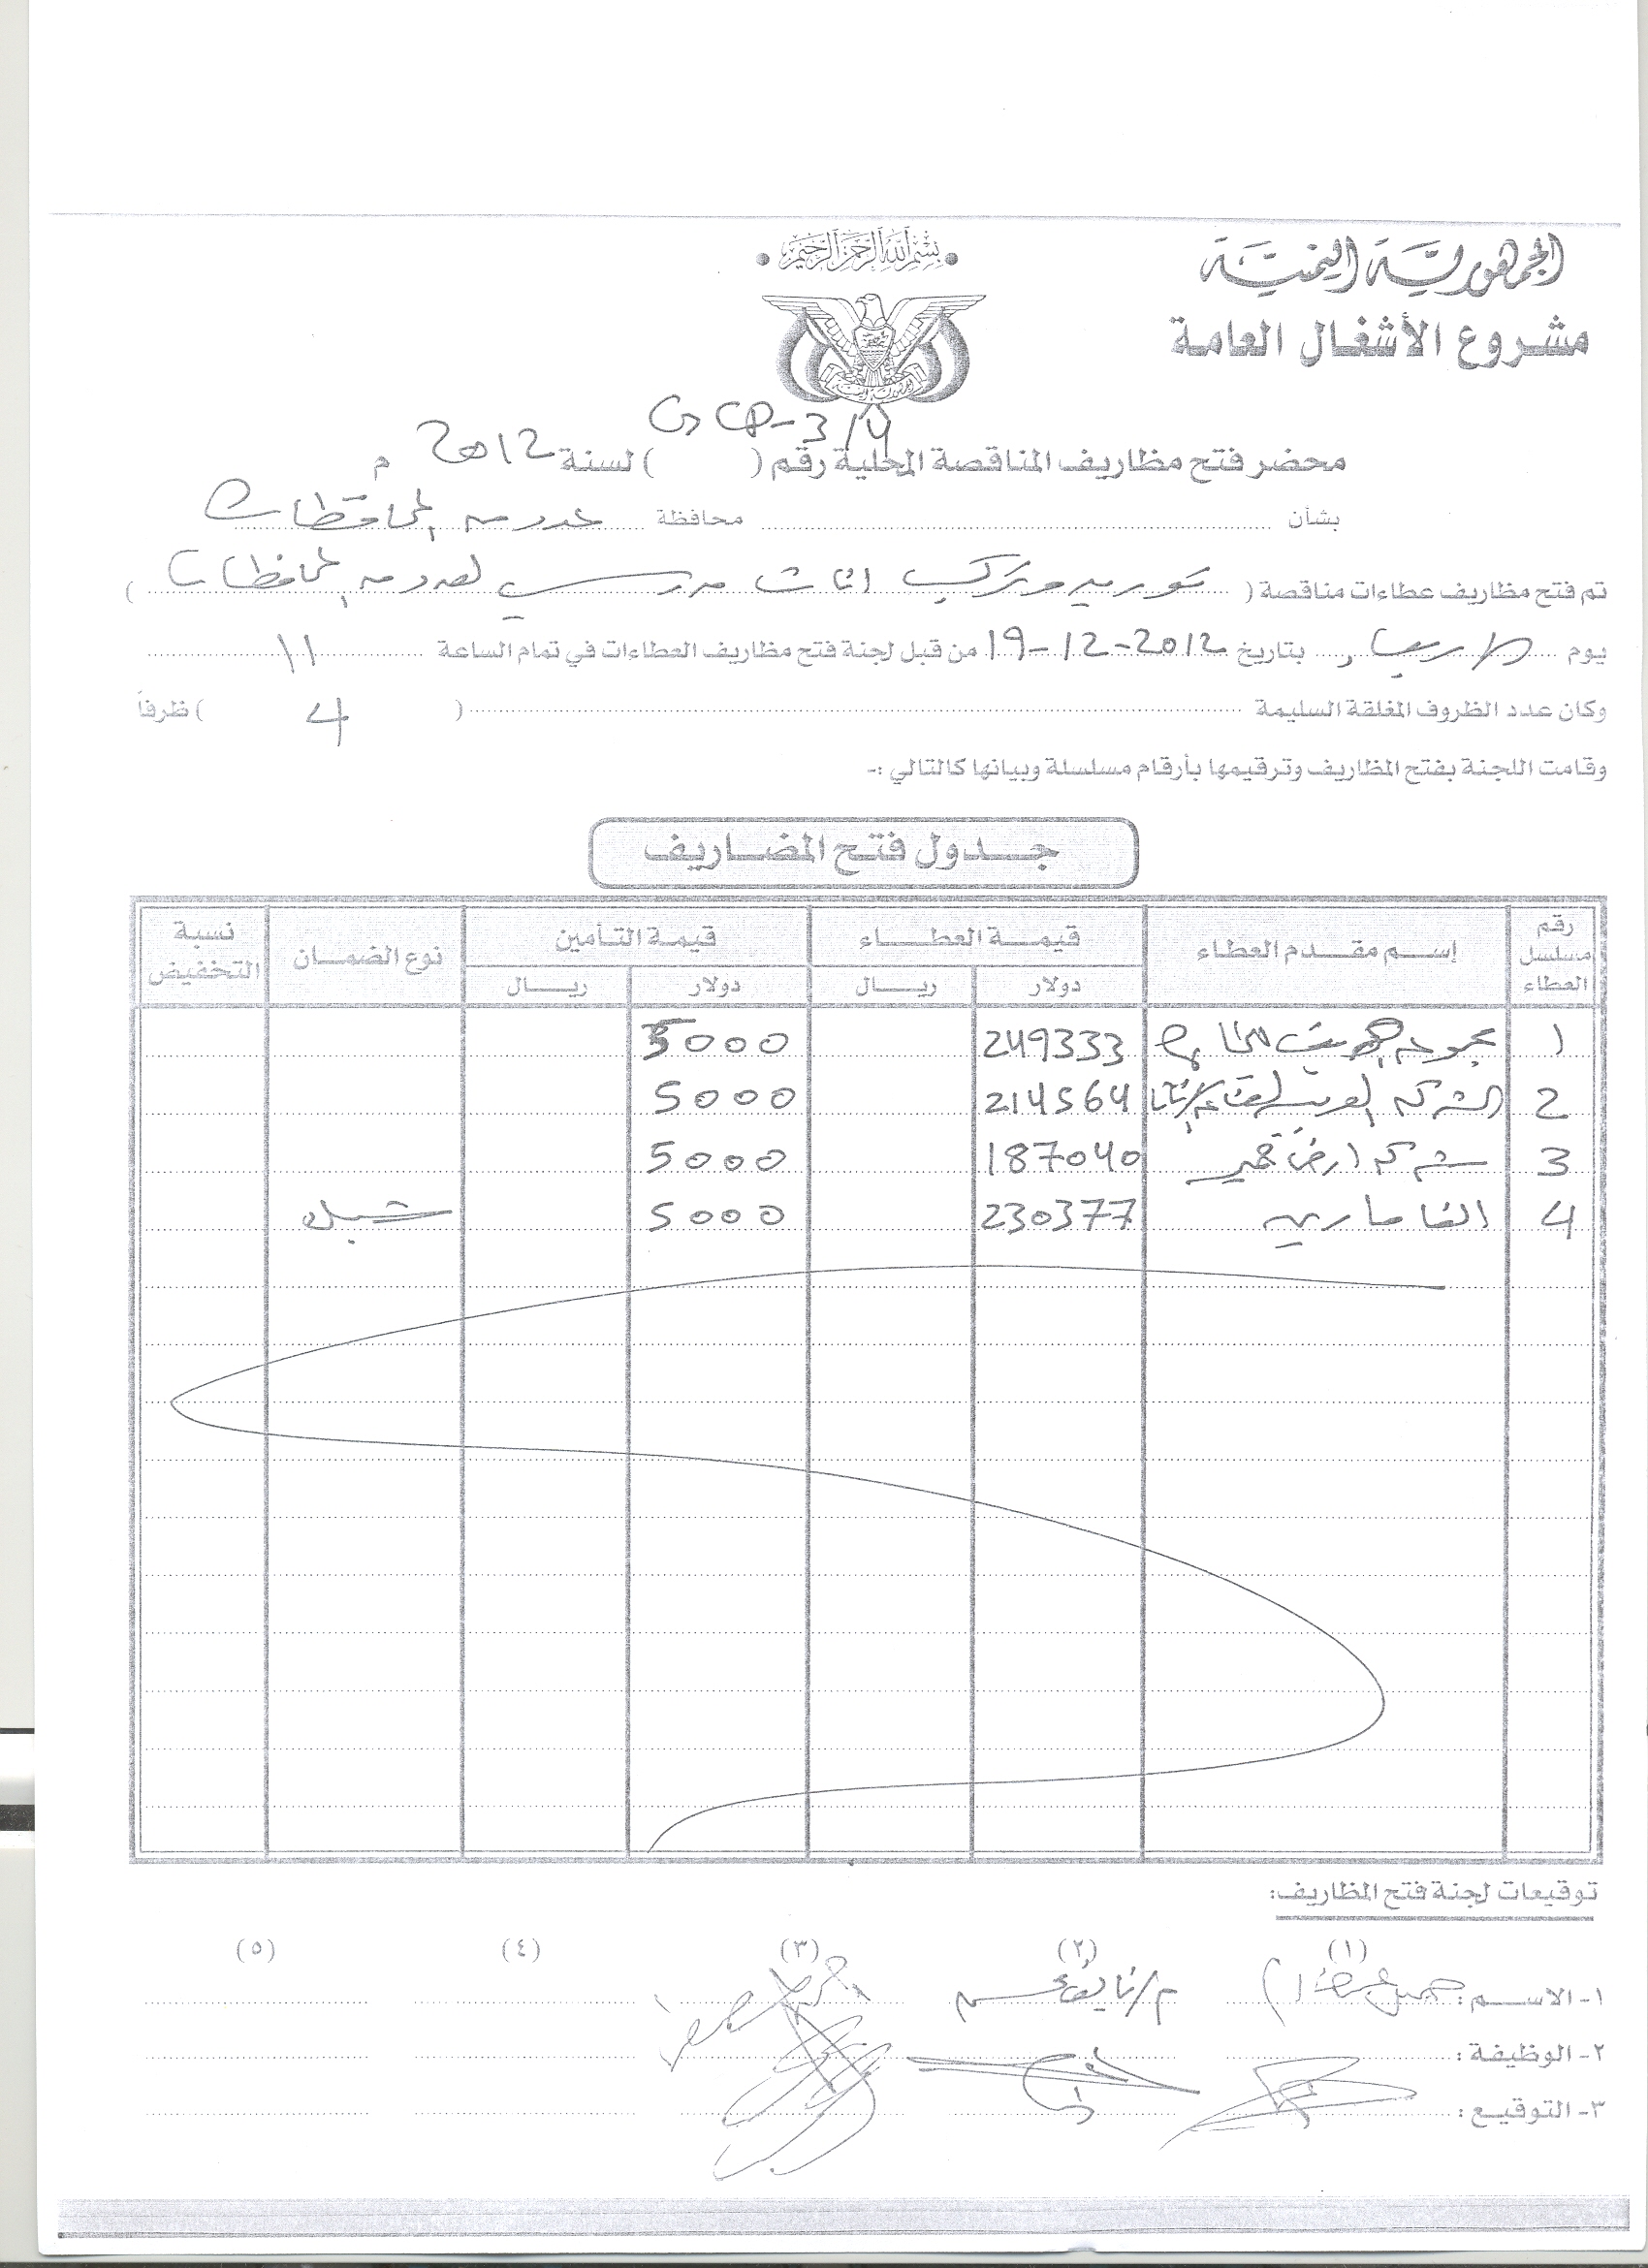 بسم الله الرحمن الرحيم
الجمهورية اليمنية
مشروع الأشغال العامة
محضر فتح مظاريف المناقصة المحلية رقم ( GCP-3/4 ) لسنة 2012 م
بشأن محافظة عدد من المحافظات
تم فتح مظاريف عطاءات مناقصة ( توريد وتركيب اثاث مدرسي لعدد من المحافظات )
يوم الاربعاء بتاريخ 19-12-2012 من قبل لجنة فتح مظاريف العطاءات في تمام الساعة 11
وكان عدد الظروف المغلقة السليمة ( 4 ) ظرفاً
وقامت اللجنة بفتح المظاريف وترقيمها بأرقام مسلسلة وبيانها كالتالي :-
جدول فتح المضاريف
رقم مسلسل العطاء إسم مقدم العطاء قيمة العطاء قيمة التأمين نوع الضمان نسبة التخفيض
دولار ريال دولار ريال
1 مجموعة 249333 5000
2 الشركة العربية 214564 5000
3 شركة ارض 187040 5000
4 230377 5000
توقيعات لجنة فتح المظاريف:
(١) (٢) (٣) (٤) (٥)
١- الاسم : م/نايف
٢- الوظيفة :
٣- التوقيع :